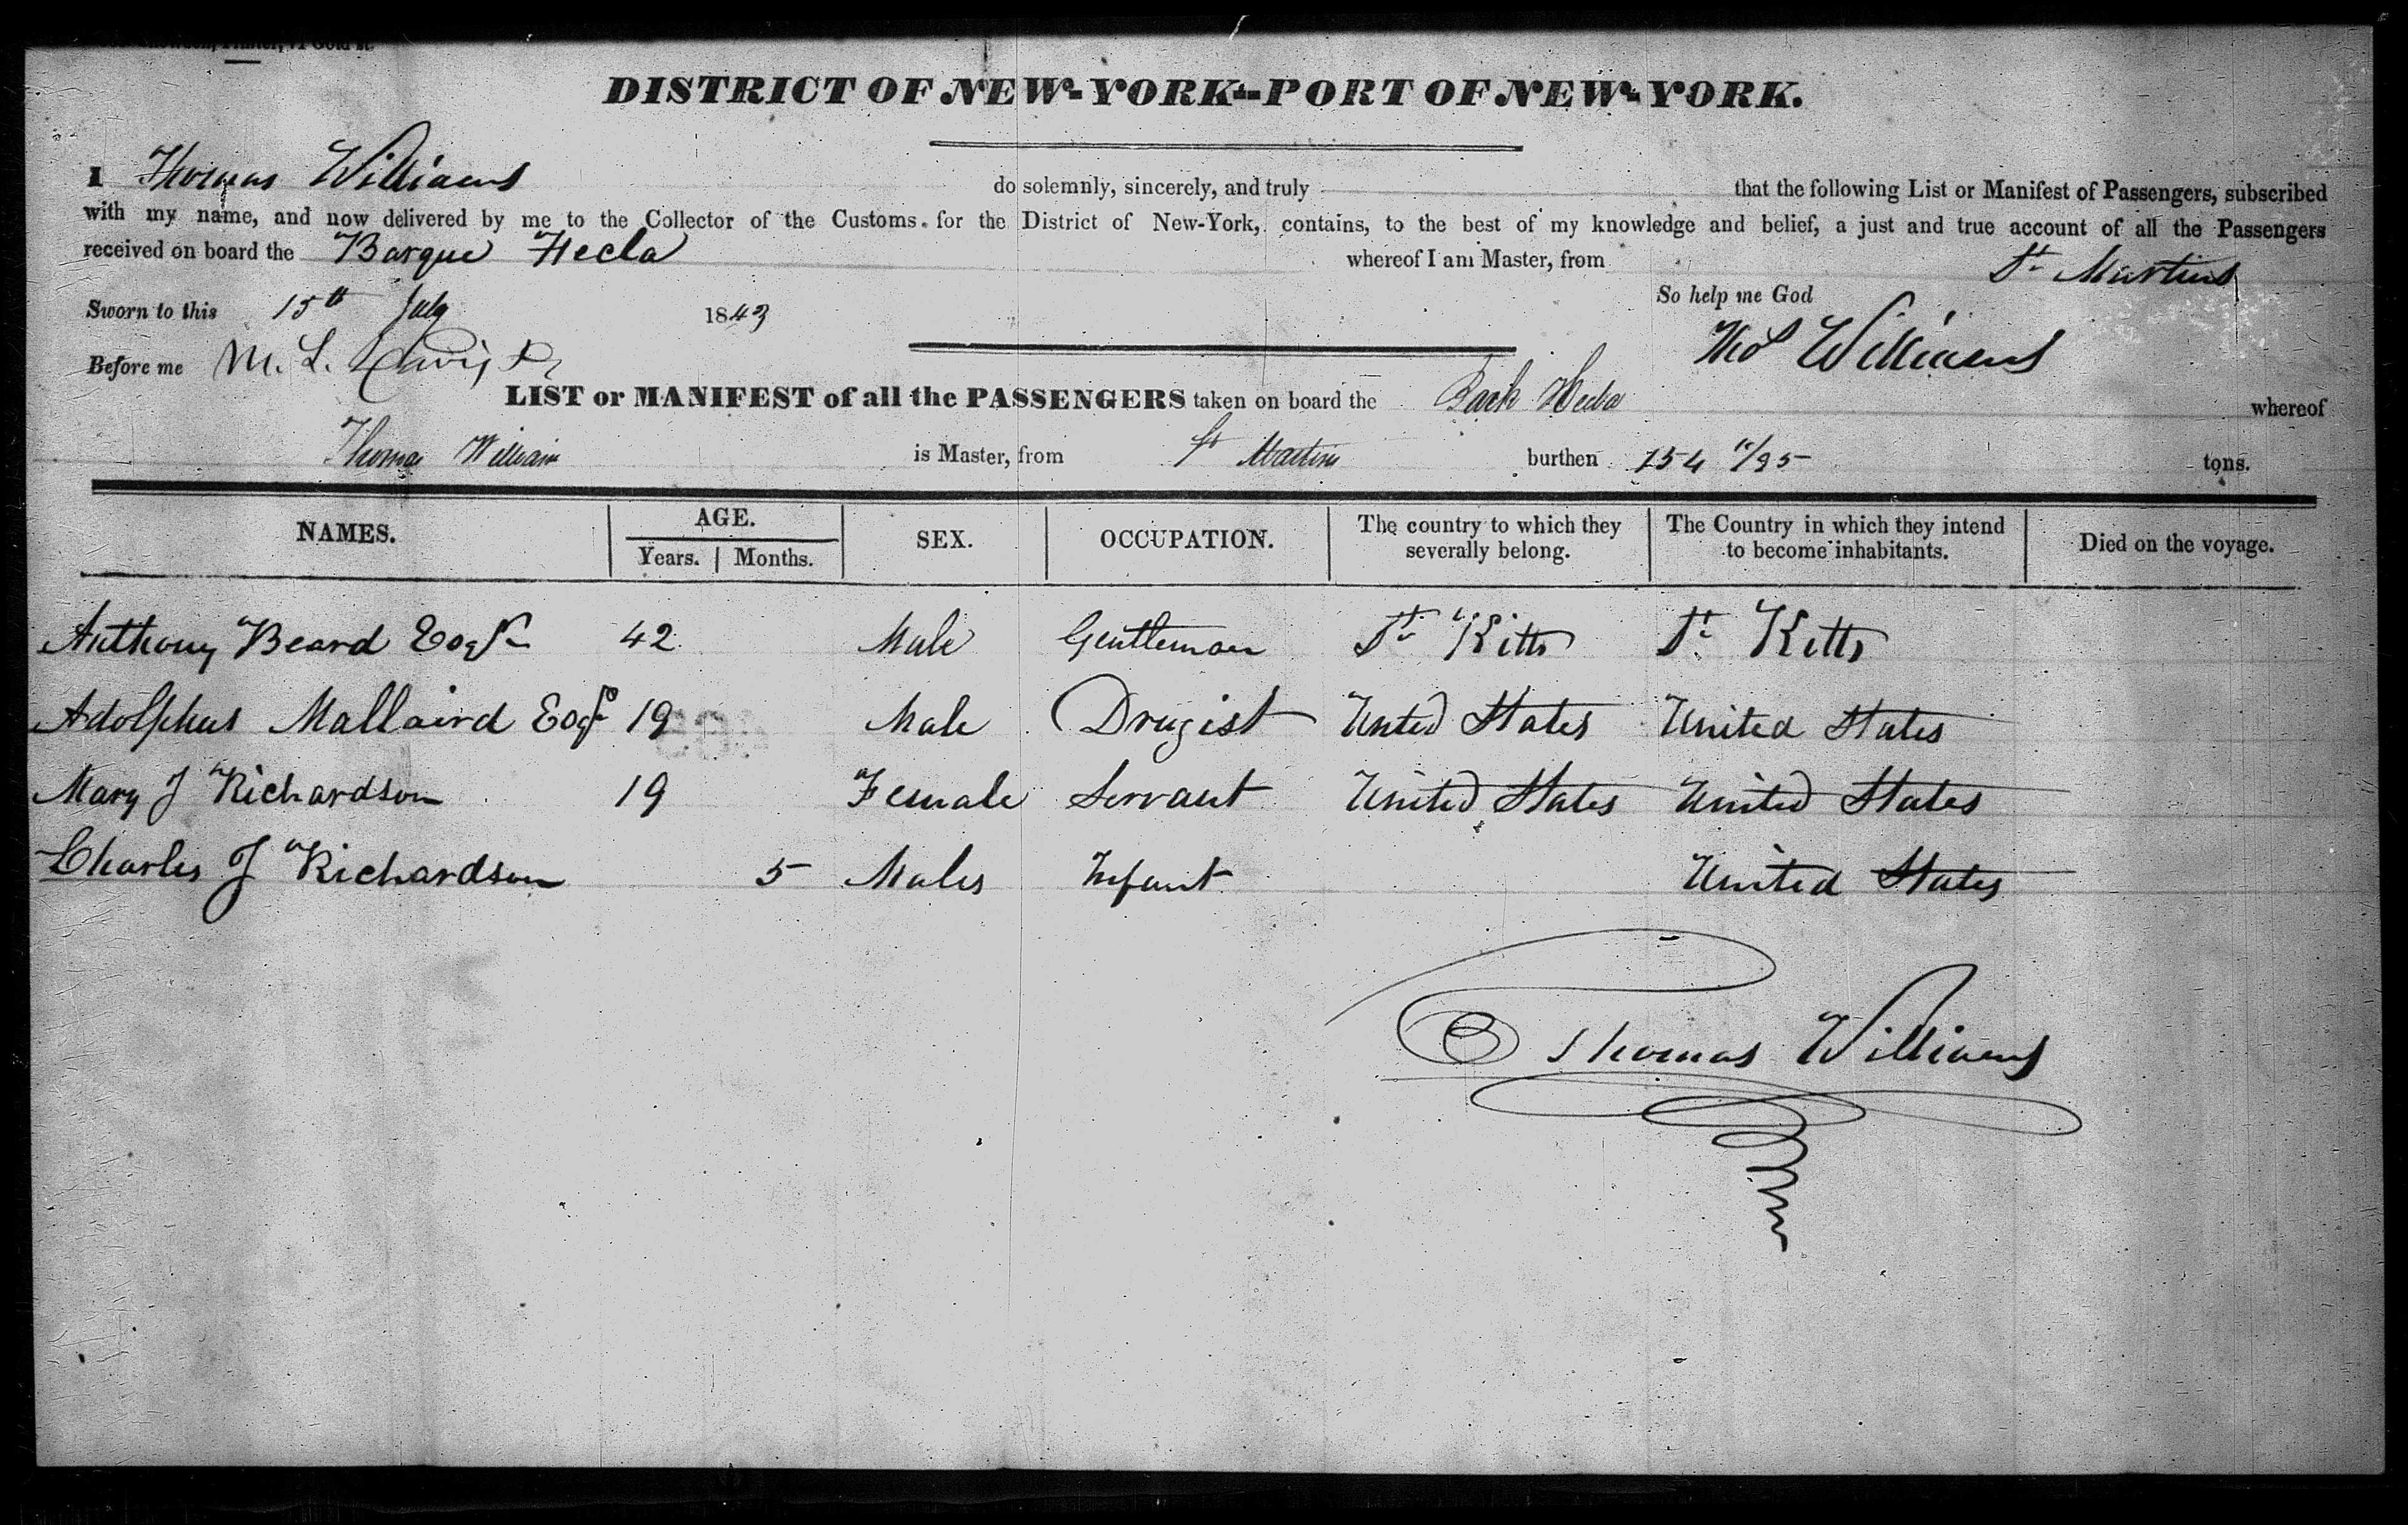 Printer, 71 Gold st.
DISTRICT OF NEW-YORK--PORT OF NEW-YORK.
I Thomas Williams do solemnly, sincerely, and truly that the following List or Manifest of Passengers, subscribed
with my name, and now delivered by me to the Collector of the Customs for the District of New-York, contains, to the best of my knowledge and belief, a just and true account of all the Passengers
received on board the Barque Hecla whereof I am Master, from St. Martins
Sworn to this 15th July 1843 So help me God
Before me M. L. Davis Thos Williams
LIST or MANIFEST of all the PASSENGERS taken on board the Bark Hecla whereof
Thomas William is Master, from St Martins burthen 154 /95 tons.
NAMES. AGE. SEX. OCCUPATION. The country to which they severally belong. The Country in which they intend to become inhabitants. Died on the voyage.
Years. Months.
Anthony Beard Esqr 42 Male Gentleman St. Kitts St. Kitts
Adolphus Mallaird Esqr 19 Male Drugist United States United States
Mary J Richardson 19 Female Servant United States United States
Charles J Richardson 5 Males Infant United States
Thomas Williams